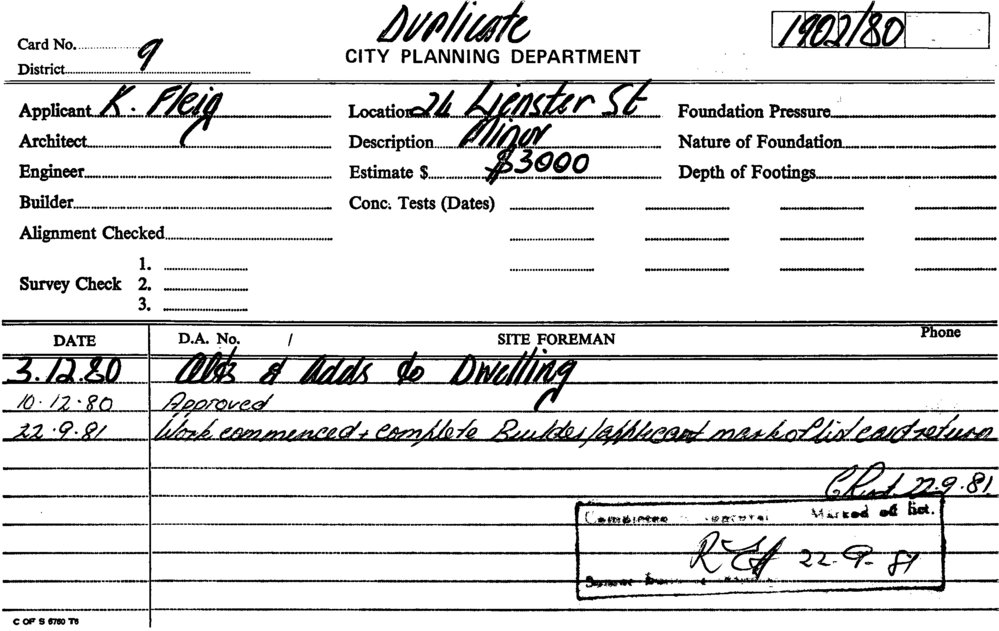 Duplicate
1902/80
Card No. 9
CITY PLANNING DEPARTMENT
District
Applicant K. Fleig Location 24 Lienster St Foundation Pressure
Architect Description Minor Nature of Foundation
Engineer Estimate $ $3000 Depth of Footings
Builder Conc. Tests (Dates)
Alignment Checked
1.
Survey Check 2.
3.
DATE D.A. No. / SITE FOREMAN Phone
3.12.80 Alts & Adds to Dwelling
10.12.80 Approved
22.9.81 Work commenced + complete Builder/applicant mark of list card return
22.9.81.
Marked off list.
22-9-81
C OF S 6760 T6